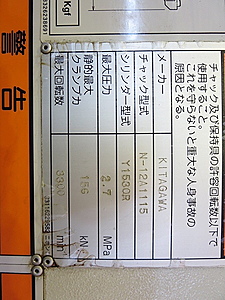 Kgf
3326238691
警告
チャック及び保持具の許容回転数以下で
使用すること。
これを守らないと重大な人身事故の
原因となる。
メーカー KITAGAWA
チャック型式 N-12A1115
シリンダー型式 Y1530R
最大圧力 2.7 MPa
静的最大
クランプ力 156 kN
最大回転数 3300 min